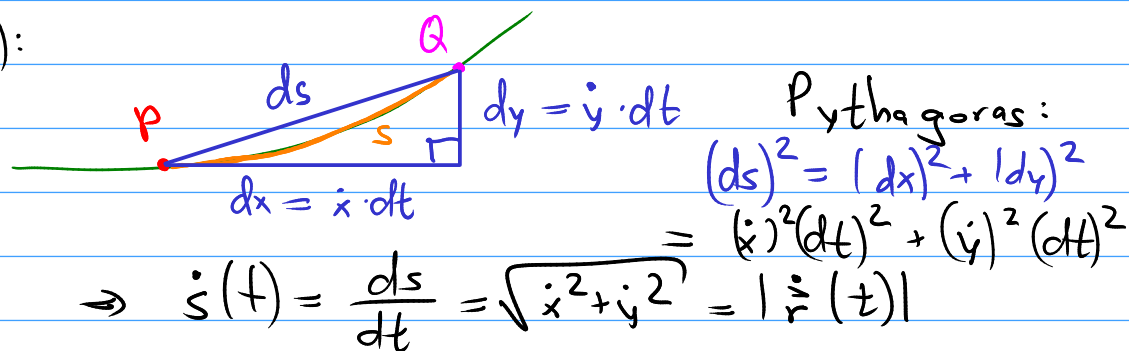 ):
Q
ds
P
s
dy = ẏ · dt
dx = ẋ · dt
Pythagoras:
(ds)² = (dx)² + (dy)²
= (ẋ)²(dt)² + (ẏ)²(dt)²
⇒ ṡ(t) = ds/dt = √(ẋ² + ẏ²) = |ṙ⃗(t)|